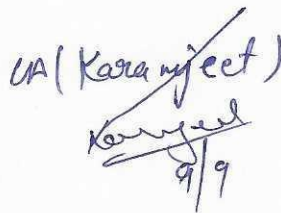 UA (Karamjeet)
Karamjeet
9/9